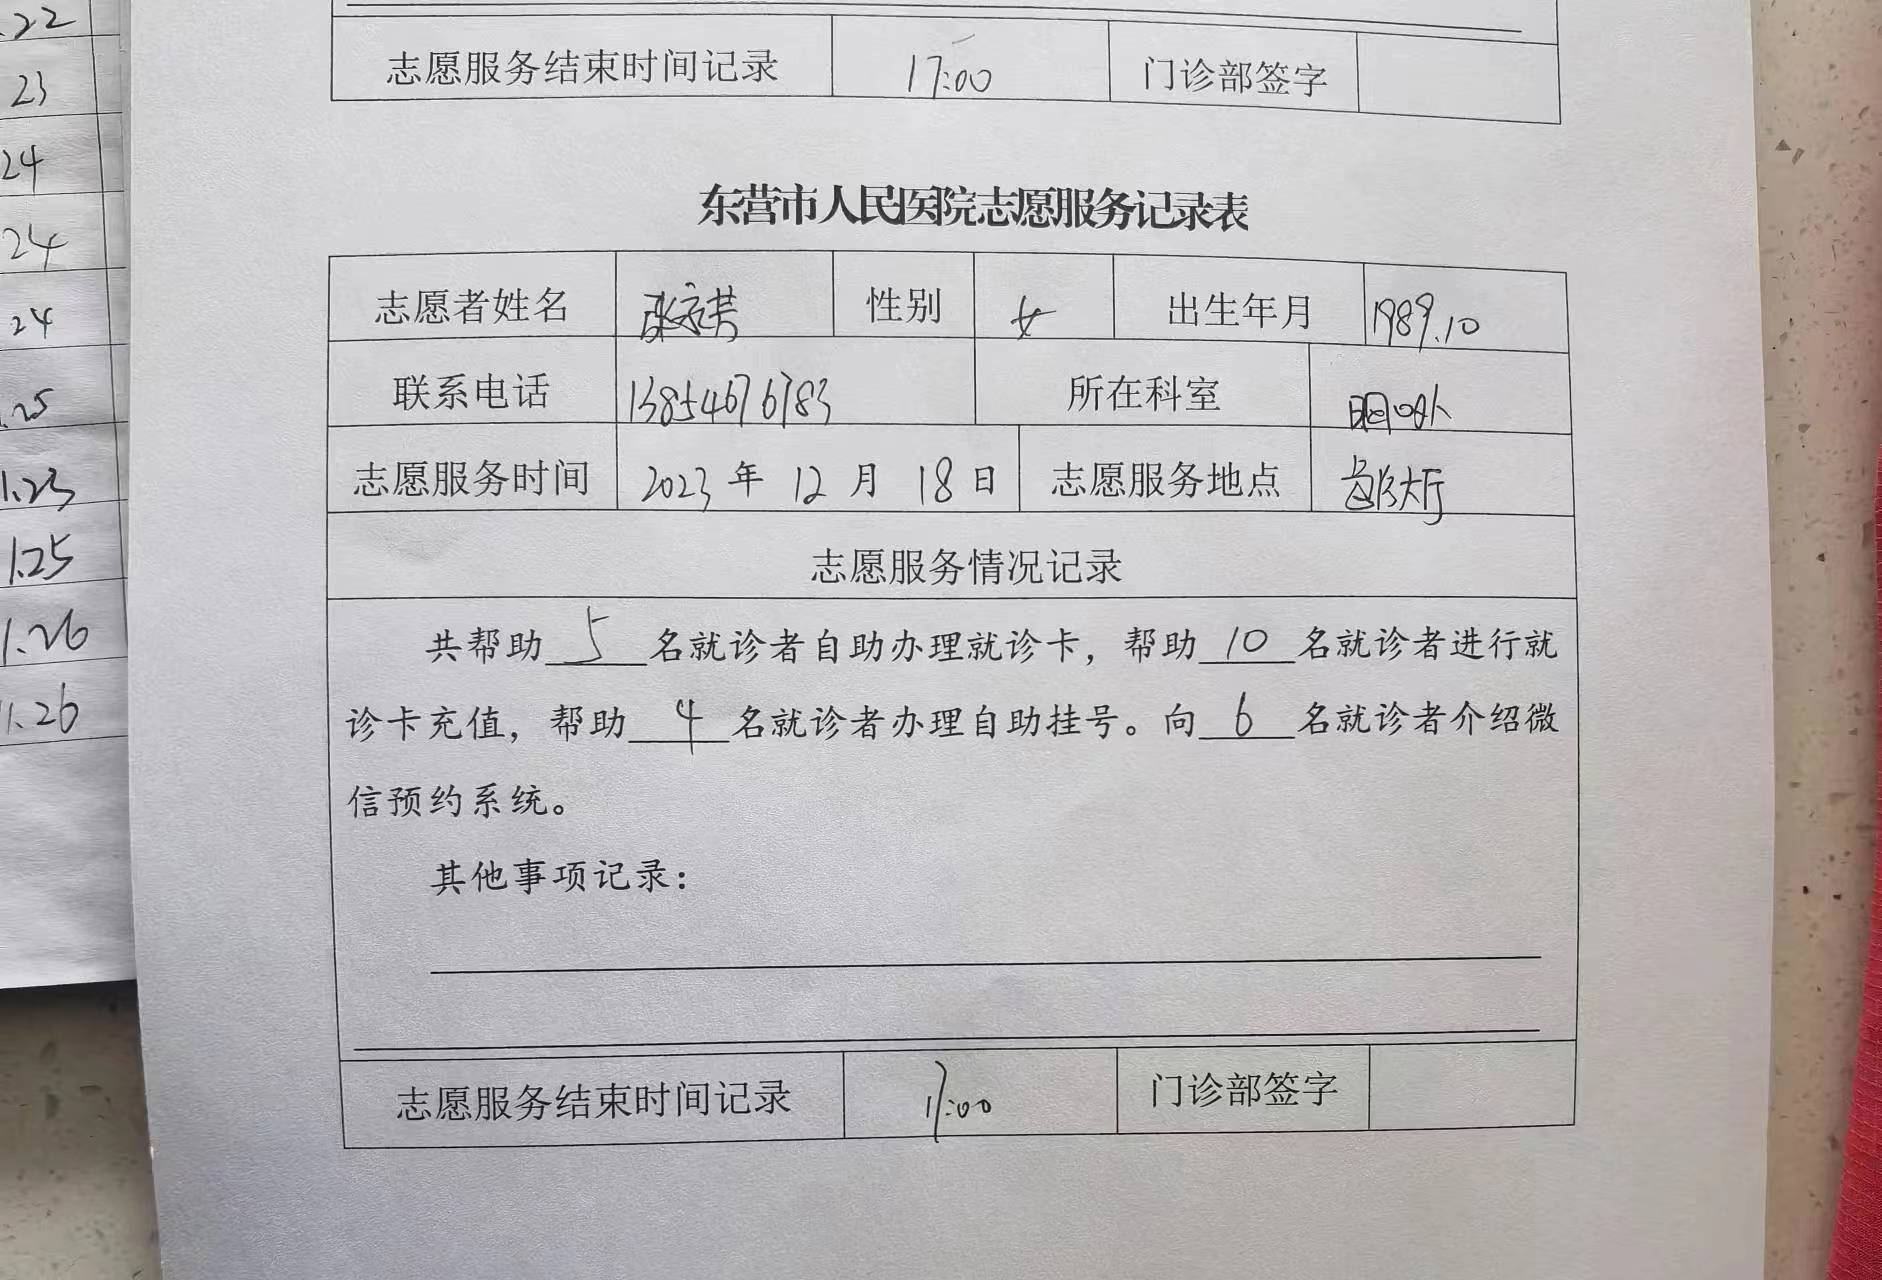 .22
23
24
24
24
.25
1.23
1.25
1.26
1.26
志愿服务结束时间记录 17:00 门诊部签字
东营市人民医院志愿服务记录表
志愿者姓名 张 芳 性别 女 出生年月 1989.10
联系电话 13854676783 所在科室 外
志愿服务时间 2023 年 12 月 18 日 志愿服务地点 大厅
志愿服务情况记录
共帮助 5 名就诊者自助办理就诊卡，帮助 10 名就诊者进行就
诊卡充值，帮助 4 名就诊者办理自助挂号。向 6 名就诊者介绍微
信预约系统。
其他事项记录：
志愿服务结束时间记录 17:00 门诊部签字